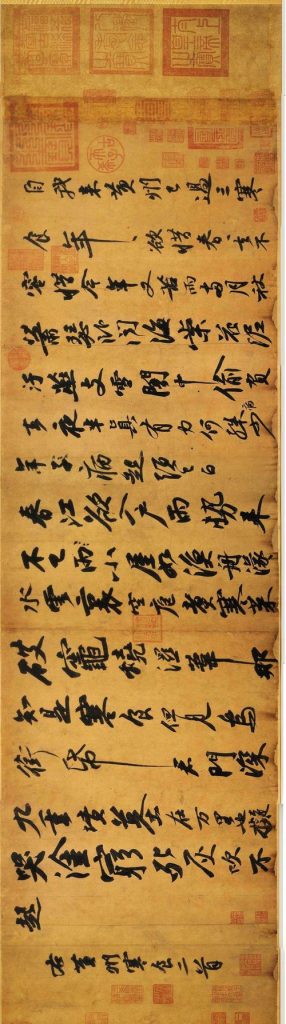 自我來黃州已過三寒
食年〻欲惜春〻去不
容惜今年又苦雨兩月秋
蕭瑟臥聞海棠花泥
汙燕支雪闇中偷負
去夜半真有力何殊病少
年子病起須已白
春江欲入戶雨勢來
不已雨小屋如漁舟濛〻
水雲裏空庖煮寒菜
破竈燒濕葦那
知是寒食但見烏
銜帋君門深
九重墳墓在萬里也擬
哭塗窮死灰吹不
起
右黃州寒食二首